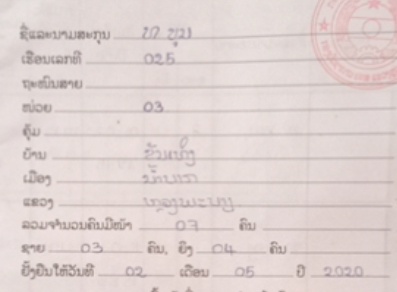 ຊື່ແລະນາມສະກຸນ ທ ຂູມ
ເຮືອນເລກທີ 025
ຖະໜົນສາຍ
ໜ່ວຍ 03
ຄຸ້ມ
ບ້ານ
ເມືອງ ນ້ຳບາກ
ແຂວງ ຫຼວງພະບາງ
ລວມຈຳນວນຄົນມີໜ້າ 07 ຄົນ
ຊາຍ 03 ຄົນ, ຍິງ 04 ຄົນ
ຢັ້ງຢືນໃຫ້ວັນທີ 02 ເດືອນ 05 ປີ 2020